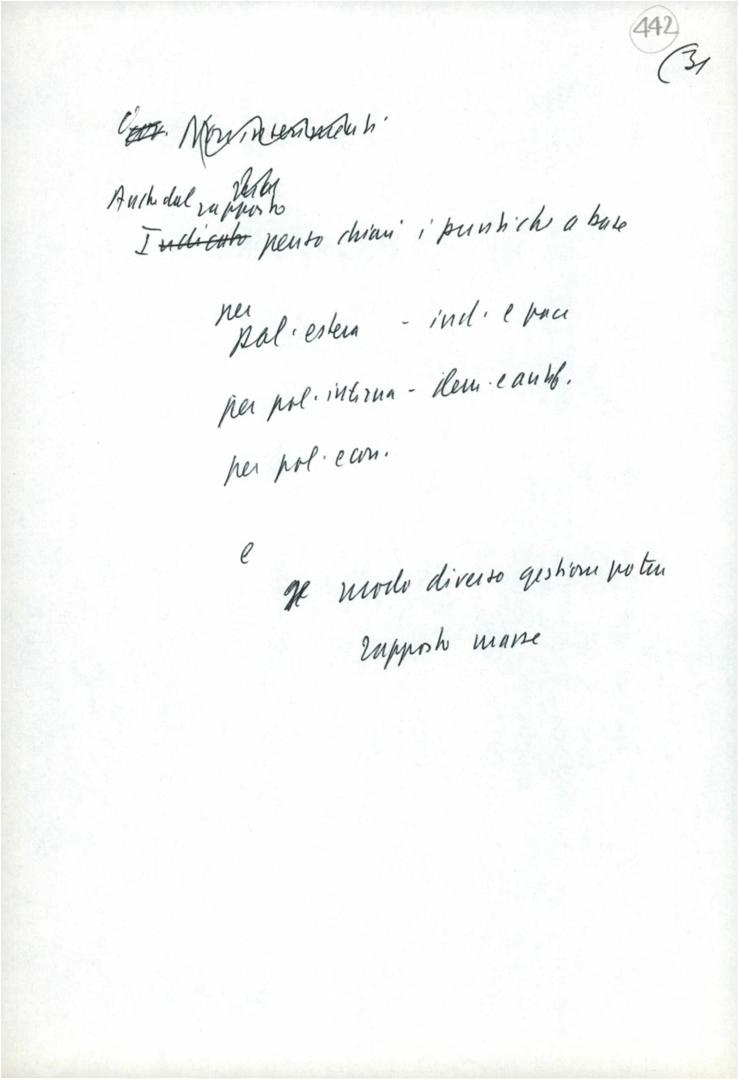 442
(31
Anche dal
rapposto
Indicato penso chiari i punti che a base
per
pol. estera - ind. e pace
per pol. interna - dem. e antif.
per pol. econ.
e
modo diverso gestione potere
rapporto masse